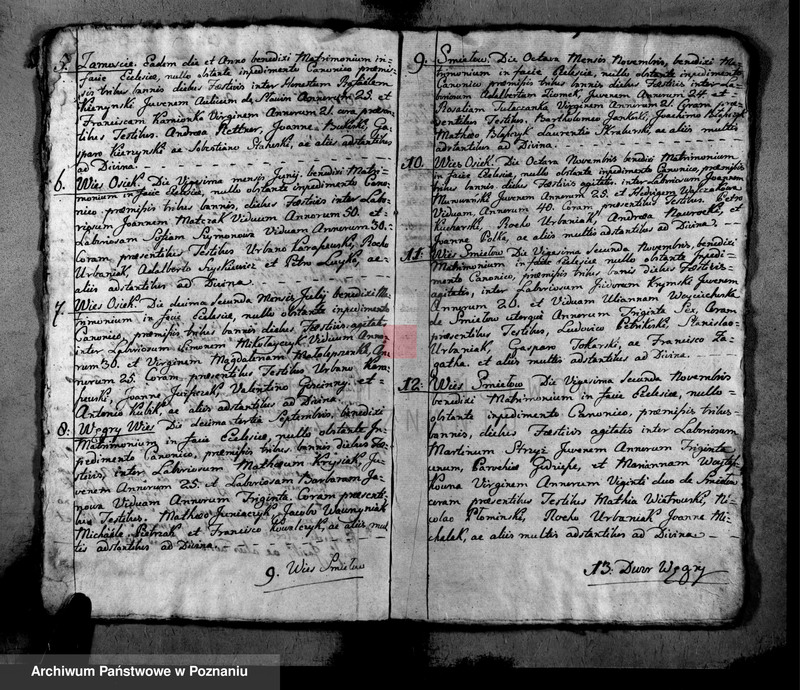 5. Zamoscie. Eadem die et Anno benedixi Matrimonium in=
facie Eclesiæ, nullo obstante inpedimento Canonico præmis=
sis tribus bannis diebus Fæstivis inter Honestum
Kierynski Juvenem Annorum 25. et
Franciscam Kamionka Virginem Annorum 21. coram præsen=
tibus Testibus. Andrea Rettner, Joanne Ga=
sparo Kierynski ac Sebestiano ac aliis adstantibus
ad Divina.
6. Wies Osiek. Die Vigesima mensis Junij. benedixi Matri=
monium in facie Eclesiæ, nullo obstante inpedimento Cano=
nico, præmissis tribus bannis, diebus Fæstivis inter La=
briosum Joannem Matczak Viduum Annorum 50. et=
Labriosam Sofiam Szymonowa Viduam Annorum 30.=
Coram præsentibus Testibus Urbano Karapeuski, Rocho
Urbaniak, Adalberto et Petro ac=
aliis adstantibus ad Divina.
7. Wies Osiek. Die decima secunda Mensis Julij benedixi Ma=
trimonium in facie Eclesiæ, nullo obstante inpedimento
Canonico, præmissis tribus bannis diebus Fæstivis agitatis
inter Labriosum Simonem Mikolayczyk Viduum Anno=
rum 30. et Virginem Magdalenam An=
norum 25. Coram præsentibus Testibus Urbano Kara=
peuski, Joanne Valentino et=
Antonio Kubik, ac aliis adstantibus ad Divina.
8. Węgry Wies Die decima tertia Septembris, benedixi
Matrimonium in facie Eclesiæ, nullo obstante In=
pedimento Canonico, præmissis tribus bannis diebus Fæ=
stivis, inter Labriosum Mathæum Krysiak, Ju=
venem Annorum 25. et Labriosam Barbaram Ja=
nowa Viduam Annorum Triginta. Coram præsenti=
bus Testibus Mathæo Jacobo
Michaele Pietrzak et Francisco Kowalczyk, ac aliis mul
tis adstantibus ad Divina.
9. Wies Smielow
9. Smielow. Die Octava Mensis Novembris, benedixi Ma=
trimonium in facie Eclesiæ, nullo obstante inpedimento
Canonico præmissis tribus bannis diebus Fæstivis inter La=
briosum Adalbertum Ziomek Juvenem Annorum 24. et
Rosaliam Tulaczanka Virginem Annorum 21. Coram præ=
sentibus Testibus. Bartholomeo Jankoski, Joachimo
Mathæo Laurentio Skraburski, ac aliis multis
adstantibus ad Divina.
10. Wies Osiek. Die Octava Novembris benedixi Matrimonium
in facie Eclesiæ, nullo obstante inpedimento Canonico, præmissis
tribus bannis, diebus Fæstivis agitatis, inter Labriosum Joannem
Murowanski Juvenem Annorum 25. et Hedvigem Walczakowa
Viduam, Annorum 40. Coram præsentibus Testibus Petro
Kucharski, Rocho Urbaniak, Andrea Nawrocki, et
Joanne Polka, ac aliis multis adstantibus ad Divina.
11. Wies Smielow Die Vigesima secunda Novembris, benedixi
Matrimonium in facie Eclesiæ nullo obstante Inpedi=
mento Canonico, præmissis tribus bannis diebus Fæstivis=
agitatis, inter Labriosum Jzidorum Krynski Juvenem
Annorum 20. et Viduam Uliannam Woyciechoska
de Smielow utorque Annorum Triginta Sex, Coram
præsentibus Testibus, Ludovico Stanislao=
Urbaniak, Gasparo Tokarski, ac Francisco Za=
gatha. et aliis multis adstantibus ad Divina.
12. Wies Smielow Die Vigesima Secunda Novembris
benedixi Matrimonium in facie Eclesiæ, nullo=
obstante inpedimento Canonico, præmissis tribus=
bannis, diebus Fæstivis agitatis inter Labriosum
Martinum Stryz Juvenem Annorum Triginta
unum, Parochiæ et Mariannam
kowna Virginem Annorum Viginti duo de Smielow
coram præsentibus Testibus Mathia Wiatrowski, Ni=
colao Plominski, Rocho Urbaniak Joanne Mi=
chalek, ac aliis multis adstantibus ad Divina
13. Dwor Węgry
Archiwum Państwowe w Poznaniu